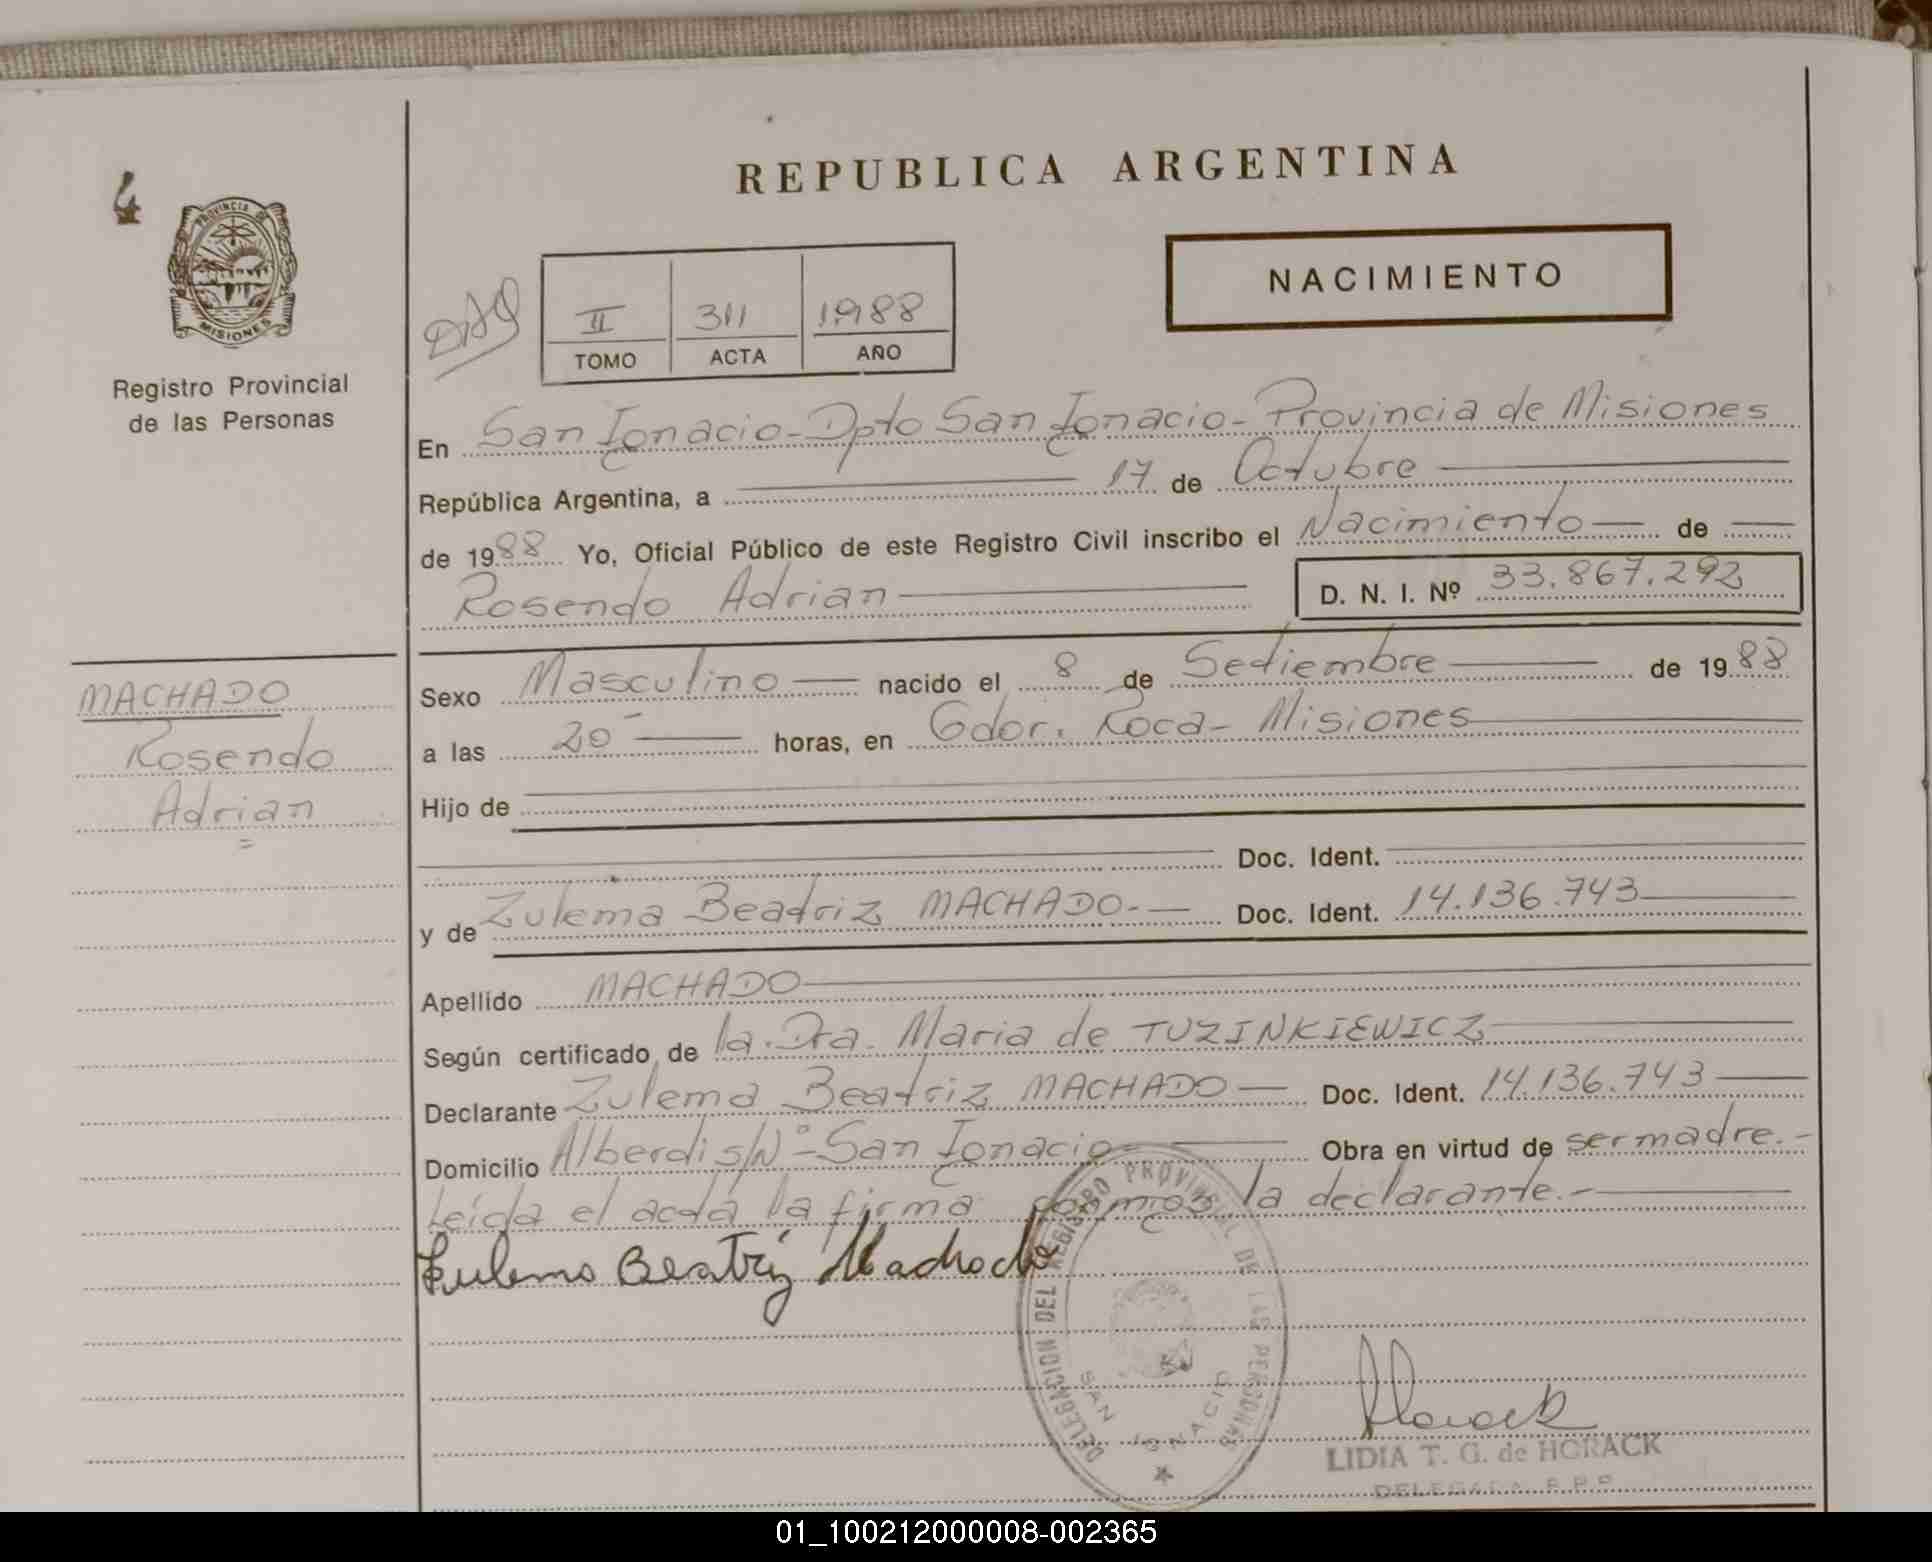 REPUBLICA ARGENTINA
4
PROVINCIA DE
MISIONES
Registro Provincial
de las Personas
II
311
1988
TOMO
ACTA
AÑO
NACIMIENTO
En San Ignacio - Dpto San Ignacio - Provincia de Misiones
República Argentina, a 17 de Octubre
de 1988 Yo, Oficial Público de este Registro Civil inscribo el Nacimiento de
Rosendo Adrian
D. N. I. Nº 33.867.292
MACHADO
Rosendo
Adrian
Sexo Masculino nacido el 8 de Setiembre de 1988
a las 20 horas, en Gdor. Roca - Misiones
Hijo de
Doc. Ident.
y de Zulema Beatriz MACHADO.- Doc. Ident. 14.136.743
Apellido MACHADO
Según certificado de la Dra. Maria de TUZINKIEWICZ
Declarante Zulema Beatriz MACHADO Doc. Ident. 14.136.743
Domicilio Alberdi s/Nº - San Ignacio Obra en virtud de ser madre.-
Leída el acta la firma conmigo la declarante.-
Zulema Beatriz Machado
DELEGACION DEL REGISTRO PROVINCIAL DE LAS PERSONAS
SAN IGNACIO
Horack
LIDIA T. G. de HORACK
DELEGADA R.P.P.
01_100212000008-002365